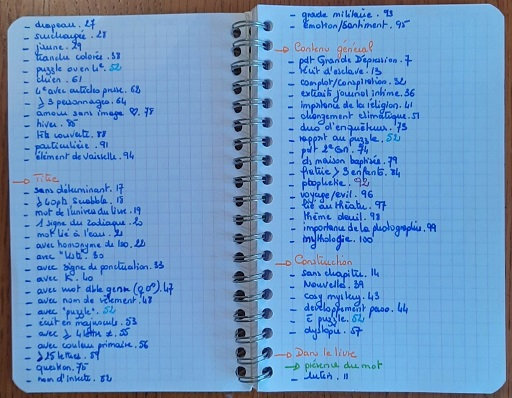 - drapeau. 27
- surchargée. 28
- jaune. 29
- tranche colorée. 38
- puzzle ou en 4e. 52
- chien. 61
- 4e avec articles presse. 62
- ≥ 3 personnages. 64
- amour sans image ♡. 78
- hiver. 85
- tête couverte. 88
- particulière. 91
- élément de vaisselle. 94
→ Titre
- sans déterminant. 17
- ≥ 60pts Scrabble. 18
- mot de l'univers du livre. 19
- 1 signe du zodiaque. 20
- mot lié à l'eau. 21
- avec homonyme de 100. 22
- avec "liste" 30
- avec signe de ponctuation. 33
- avec K. 40
- avec mot dble genre (♀♂). 47
- avec nom de vêtement. 48
- avec "puzzle". 52
- écrit en majuscule. 53
- avec ≥ 4 lettre. 55
- avec couleur primaire. 56
- ≥ 25 lettres. 59
- question. 75
- nom d'insecte. 82
- grade militaire. 93
- émotion/sentiment. 95
→ Contenu général
- pdt Grande Dépression. 7
- récit d'esclave. 13
- complot/conspiration. 32
- extraits journal intime. 36
- importance de la religion. 41
- changement climatique. 51
- duo d'enquêteurs. 73
- rapport au puzzle. 52
- pdt 2e GM. 74
- ds maison baptisée. 79
- fratrie ≥ 3 enfants. 84
- prophétie. 92
- voyage/exil. 96
- lié au théâtre. 97
- thème deuil. 98
- importance de la photographie. 99
- mythologie. 100
→ Construction
- sans chapitre. 14
- Nouvelle. 39
- cosy mystery. 43
- développement perso. 44
- c puzzle. 52
- dystopie. 57
→ Dans le livre
→ présence du mot
- lutin. 11